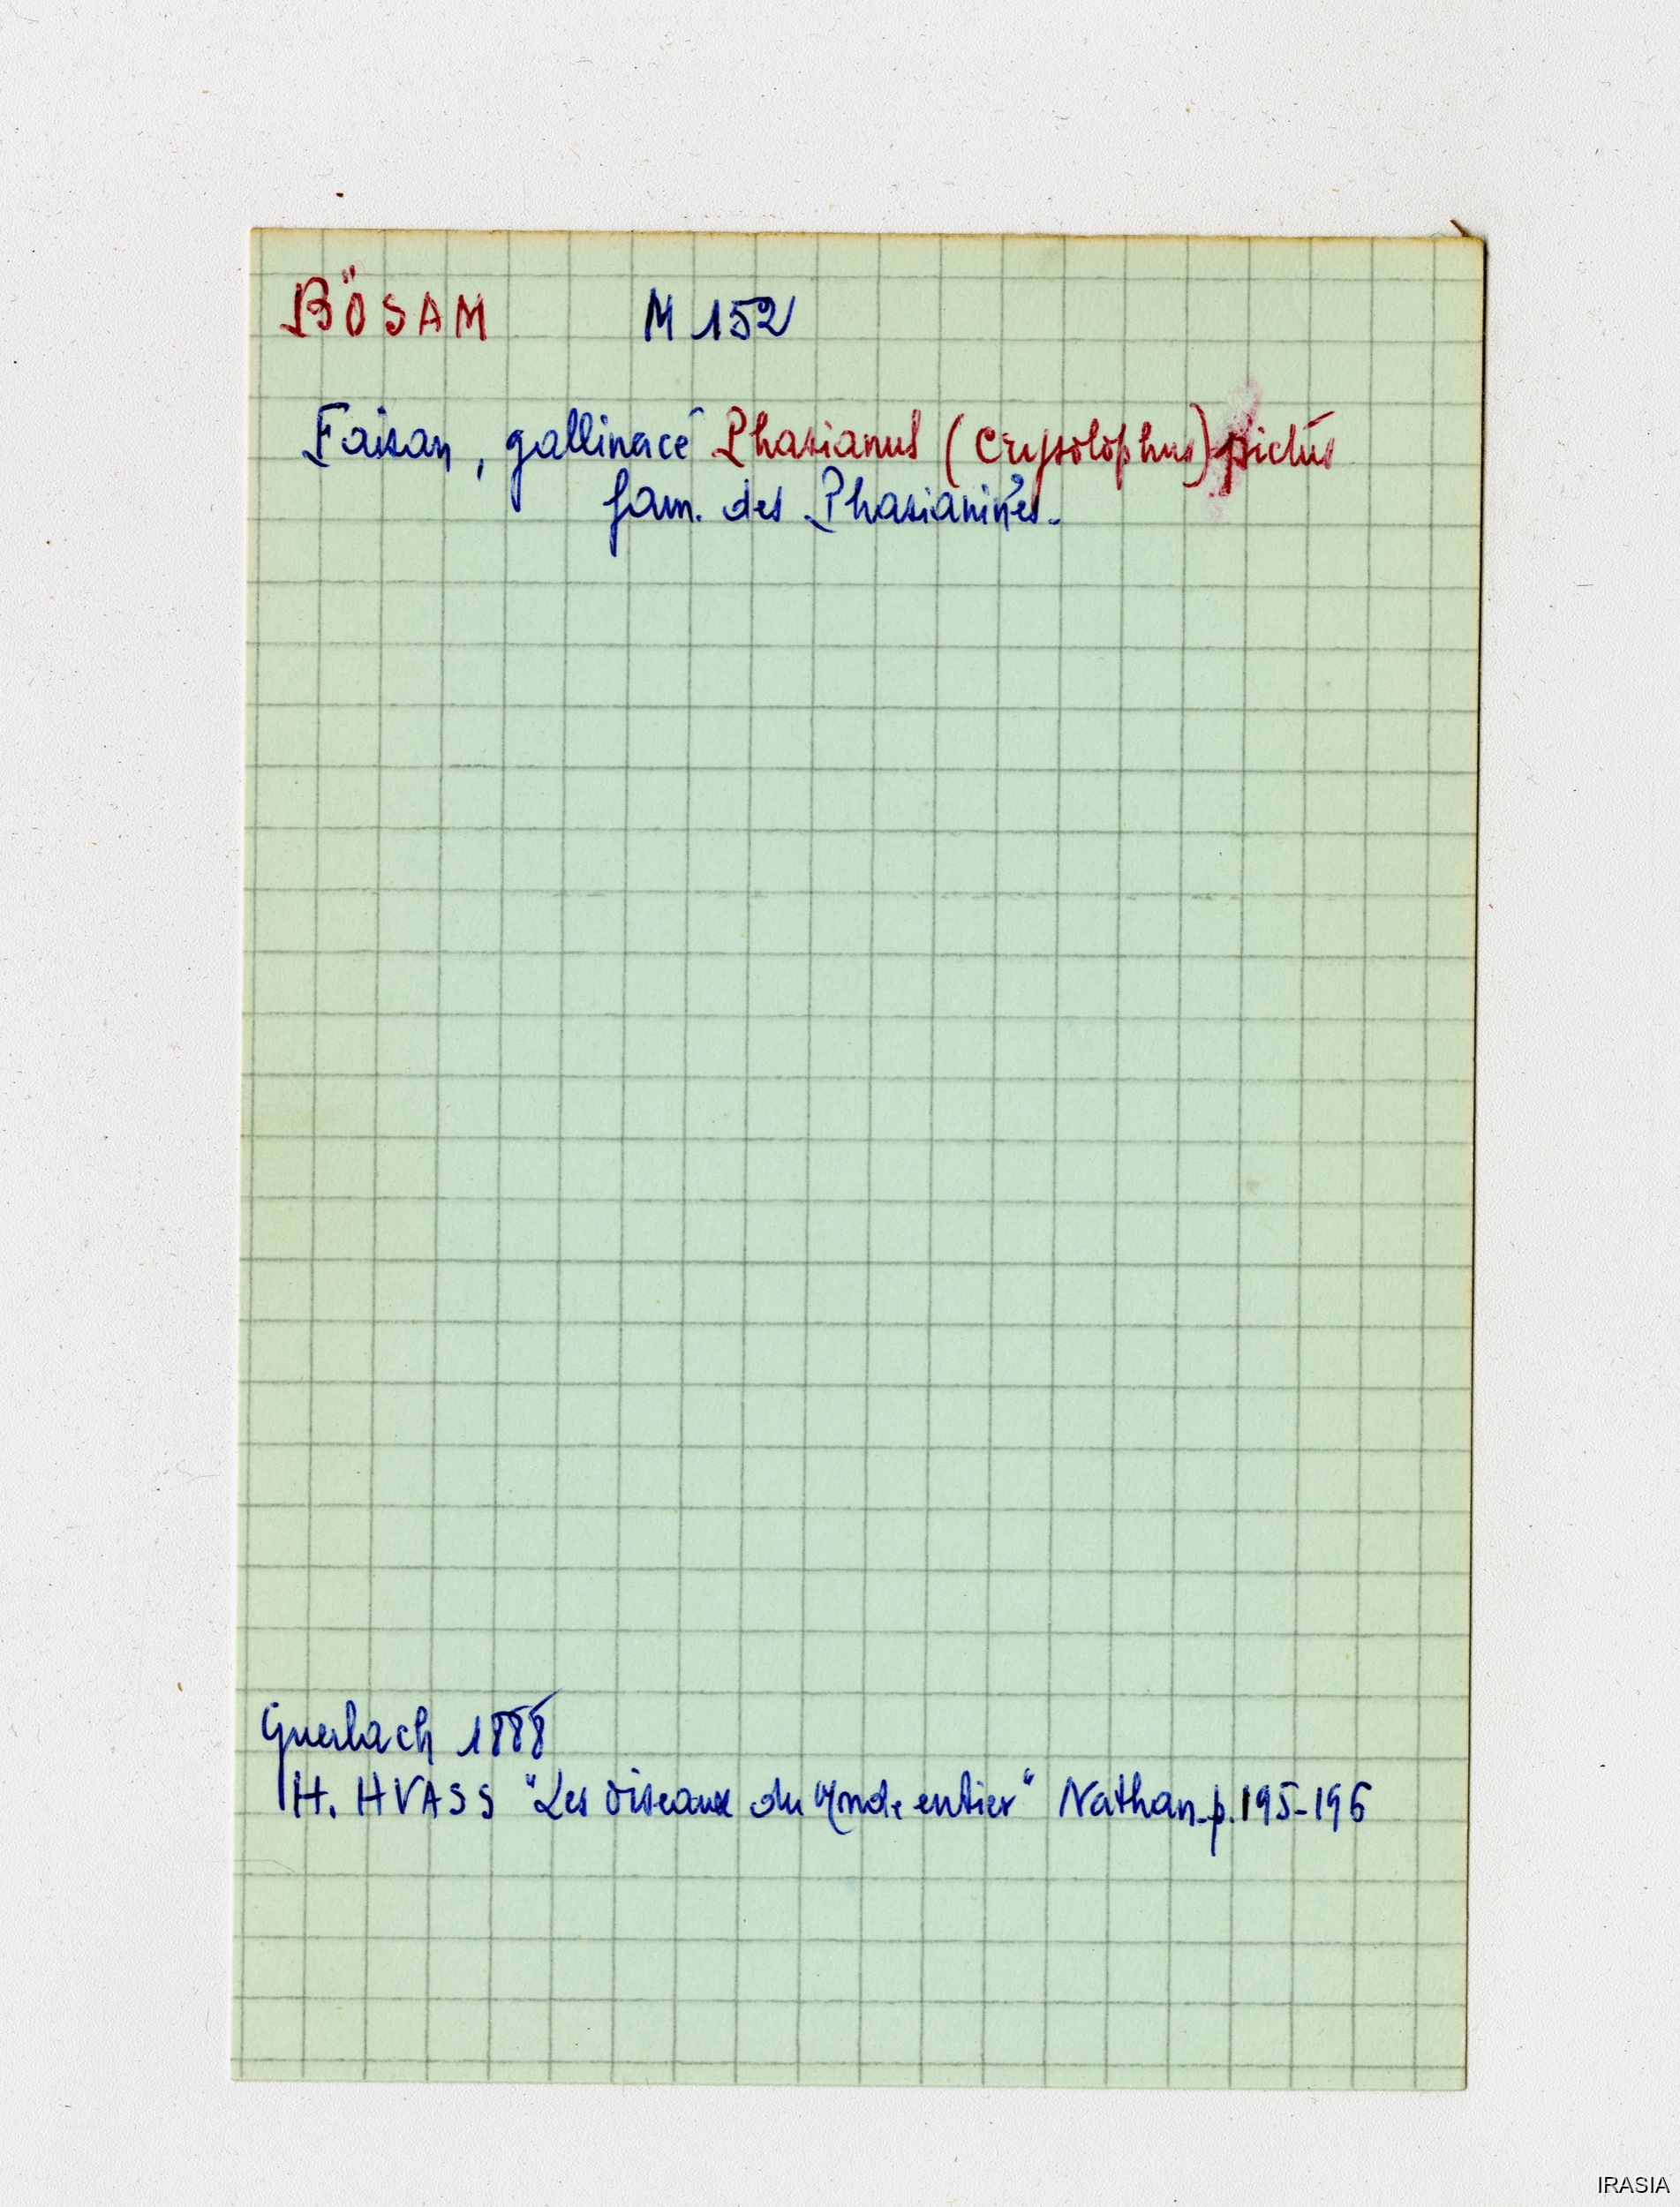 BÖSAM M 152
Faisan, gallinacé Phasianus (Crysolophus) pictus
fam. des Phasianinés.
Guerlach 1888
H. HVASS "Les oiseaux du Monde entier" Nathan. p. 195-196
IRASIA